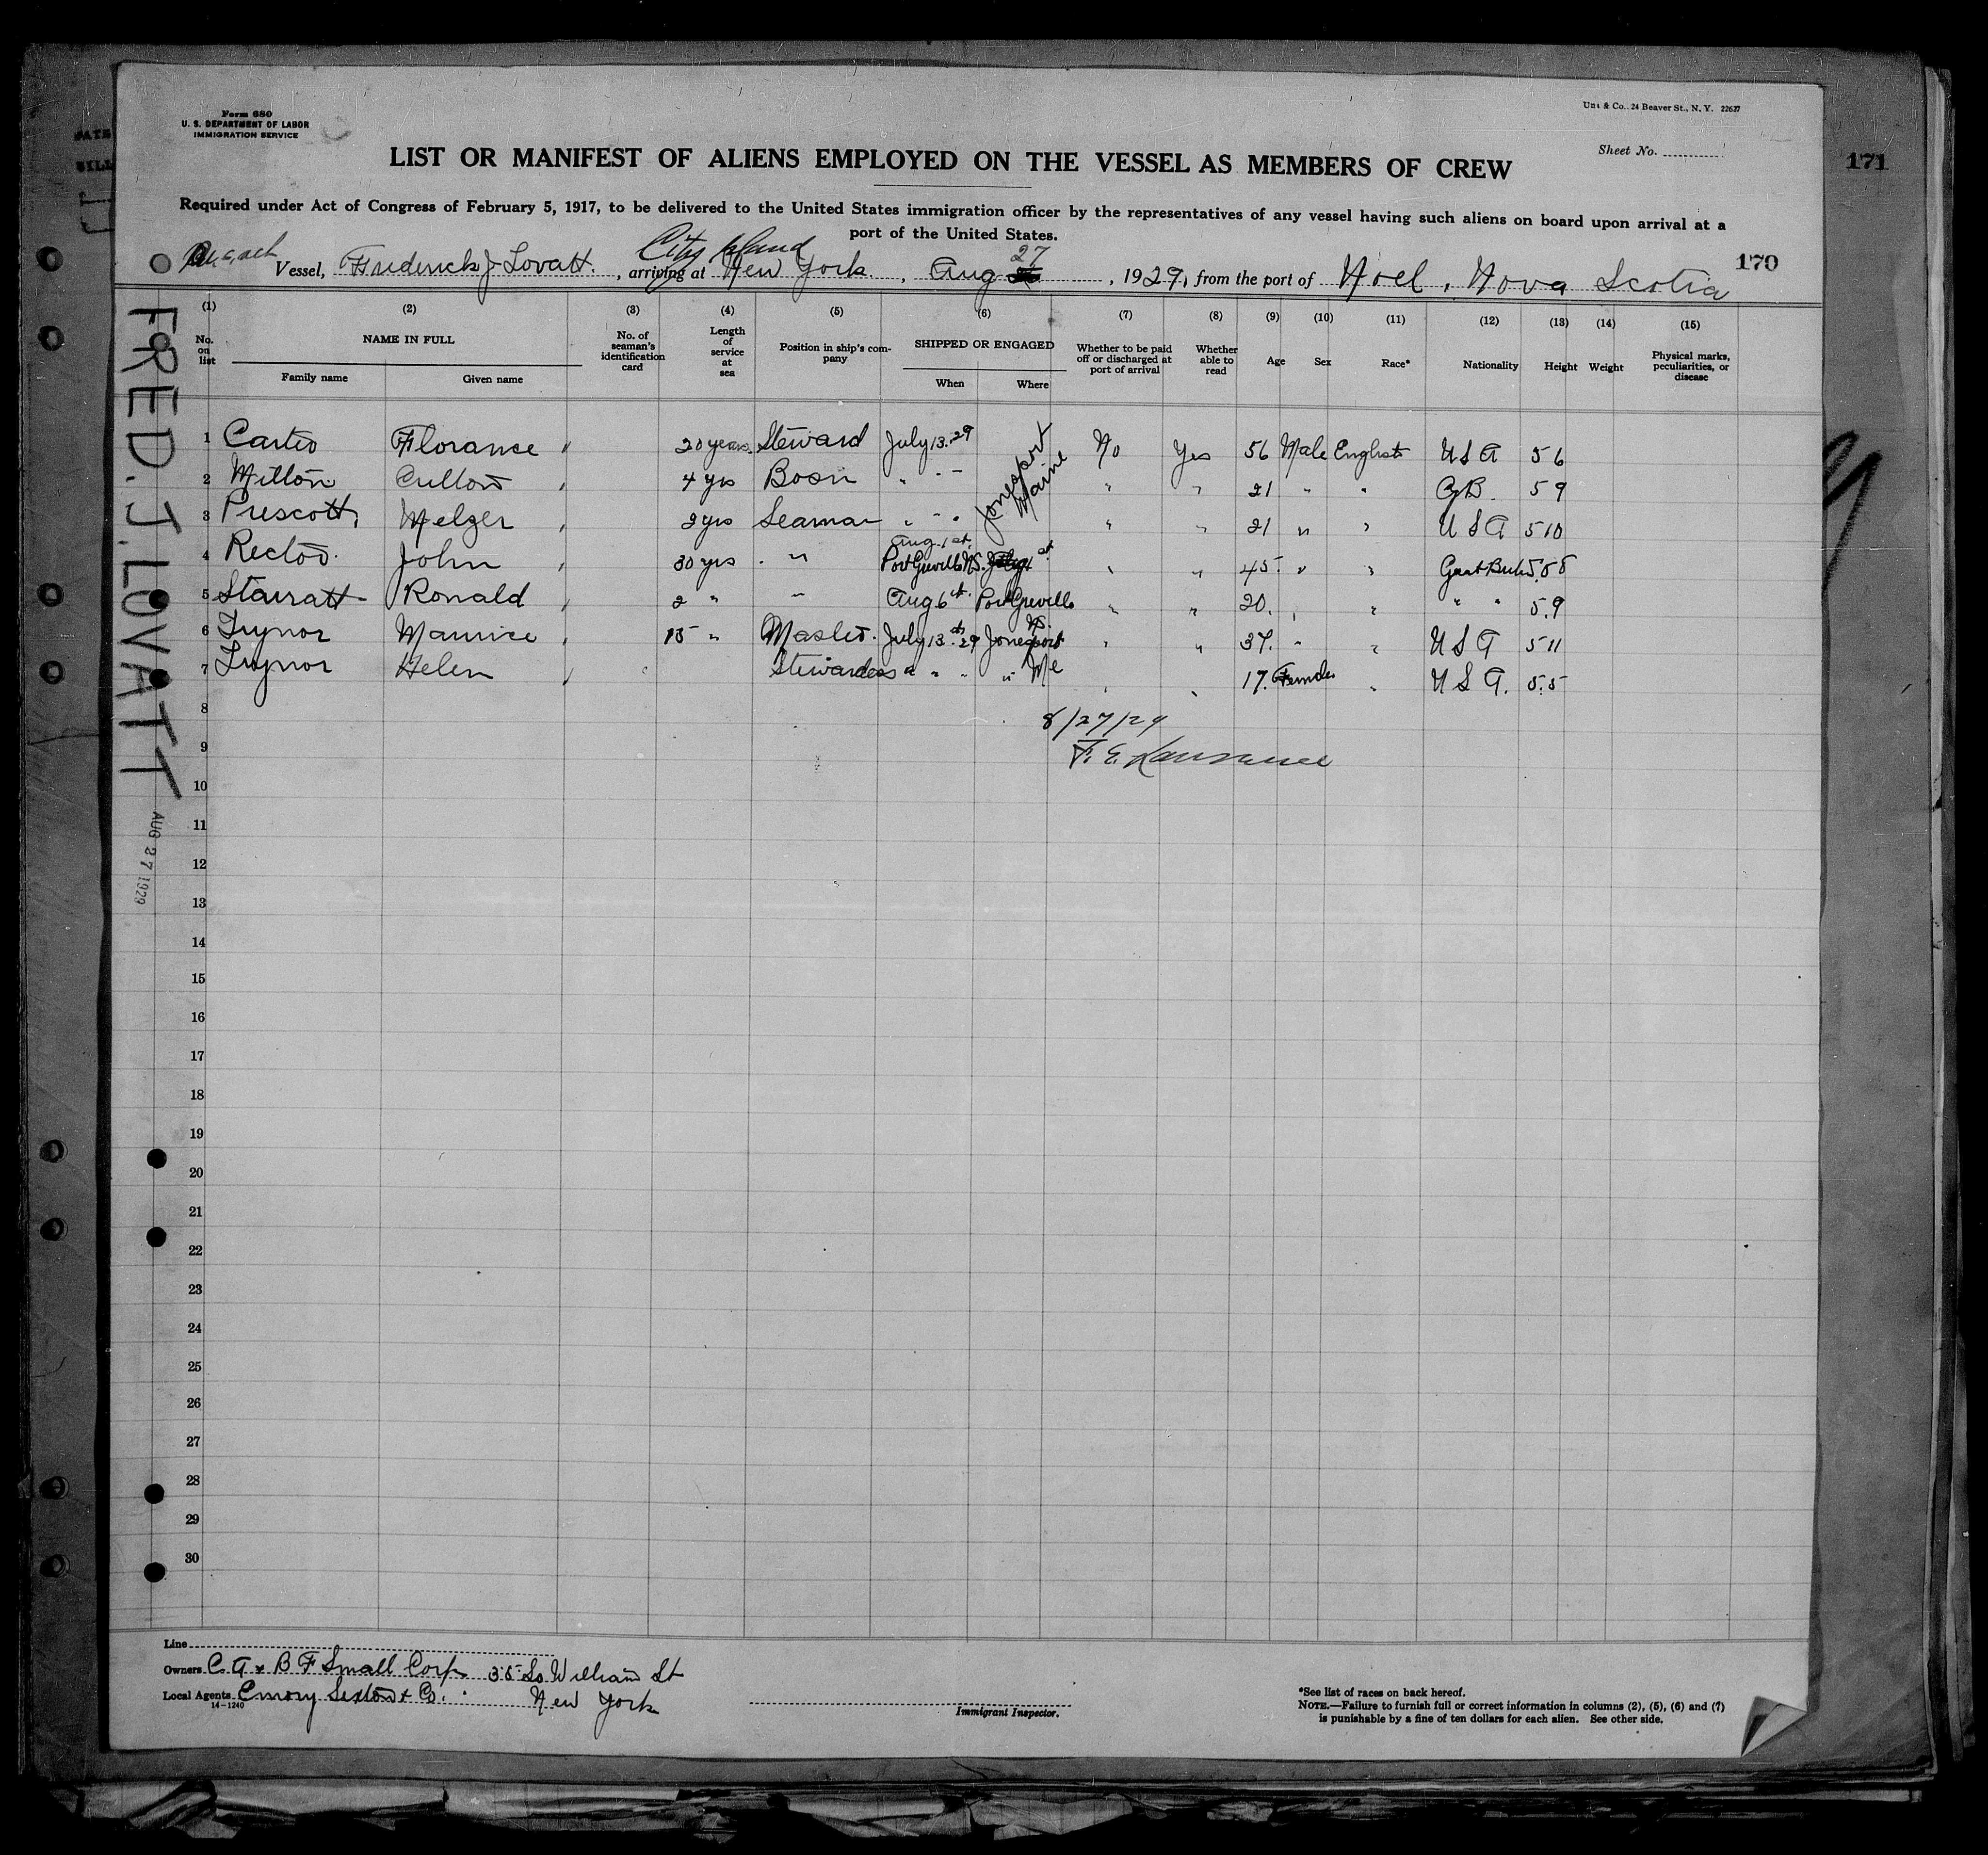 Form 680
U. S. DEPARTMENT OF LABOR
IMMIGRATION SERVICE
Uni & Co., 24 Beaver St., N. Y. 22627
Sheet No.
171
LIST OR MANIFEST OF ALIENS EMPLOYED ON THE VESSEL AS MEMBERS OF CREW
Required under Act of Congress of February 5, 1917, to be delivered to the United States immigration officer by the representatives of any vessel having such aliens on board upon arrival at a
port of the United States.
City Island
27
Vessel, Frederick J Lovatt, arriving at New York, Aug, 1929, from the port of Noel, Nova Scotia
170
FRED. J. LOVATT
AUG 27 1929
(1) (2) (3) (4) (5) (6) (7) (8) (9) (10) (11) (12) (13) (14) (15)
No. on list
NAME IN FULL
Family name Given name
No. of seaman's identification card
Length of service at sea
Position in ship's company
SHIPPED OR ENGAGED
When Where
Whether to be paid off or discharged at port of arrival
Whether able to read
Age Sex Race* Nationality Height Weight
Physical marks, peculiarities, or disease
1 Carter Florance 20 years Steward July 13-29 Jonesport Maine No Yes 56 Male English U S A 5 6
2 Milton 4 yrs Bosn " " " " 21 " " G B. 5 9
3 Prescott, Melzer 2 yrs Seaman " " " " " 21 " " U S A 5 10
Aug. 1st.
4 Rector. John 30 yrs " Port Greville N.S. " " 45. " " Great Brit 5.08
5 Starratt Ronald 2 " " Aug 6th Port Greville N.S. " " 20. " " " " 5.9
6 Trynor Maurice 15 " Master. July 13th-29 Jonesport " " 37. " " U S A 5 11
7 Trynor Helen Stewardess " " " " Me " " 17. Female " U S A. 5.5
8
8/27/29
9
F. E. Lawrence
10
11
12
13
14
15
16
17
18
19
20
21
22
23
24
25
26
27
28
29
30
Line
Owners C A & B F Small Corp 35 So William St
Local Agents Emory Sexton & Co. New York
14-1240
Immigrant Inspector.
*See list of races on back hereof.
NOTE.—Failure to furnish full or correct information in columns (2), (5), (6) and (7)
is punishable by a fine of ten dollars for each alien. See other side.